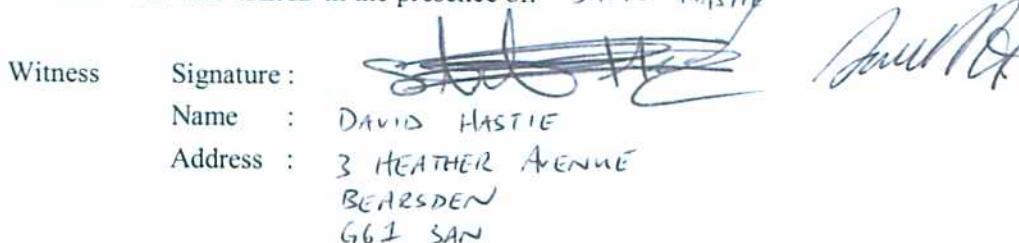 in the presence of:
Witness Signature :
Name : DAVID HASTIE
Address : 3 HEATHER AVENUE
BEARSDEN
G61 3AN